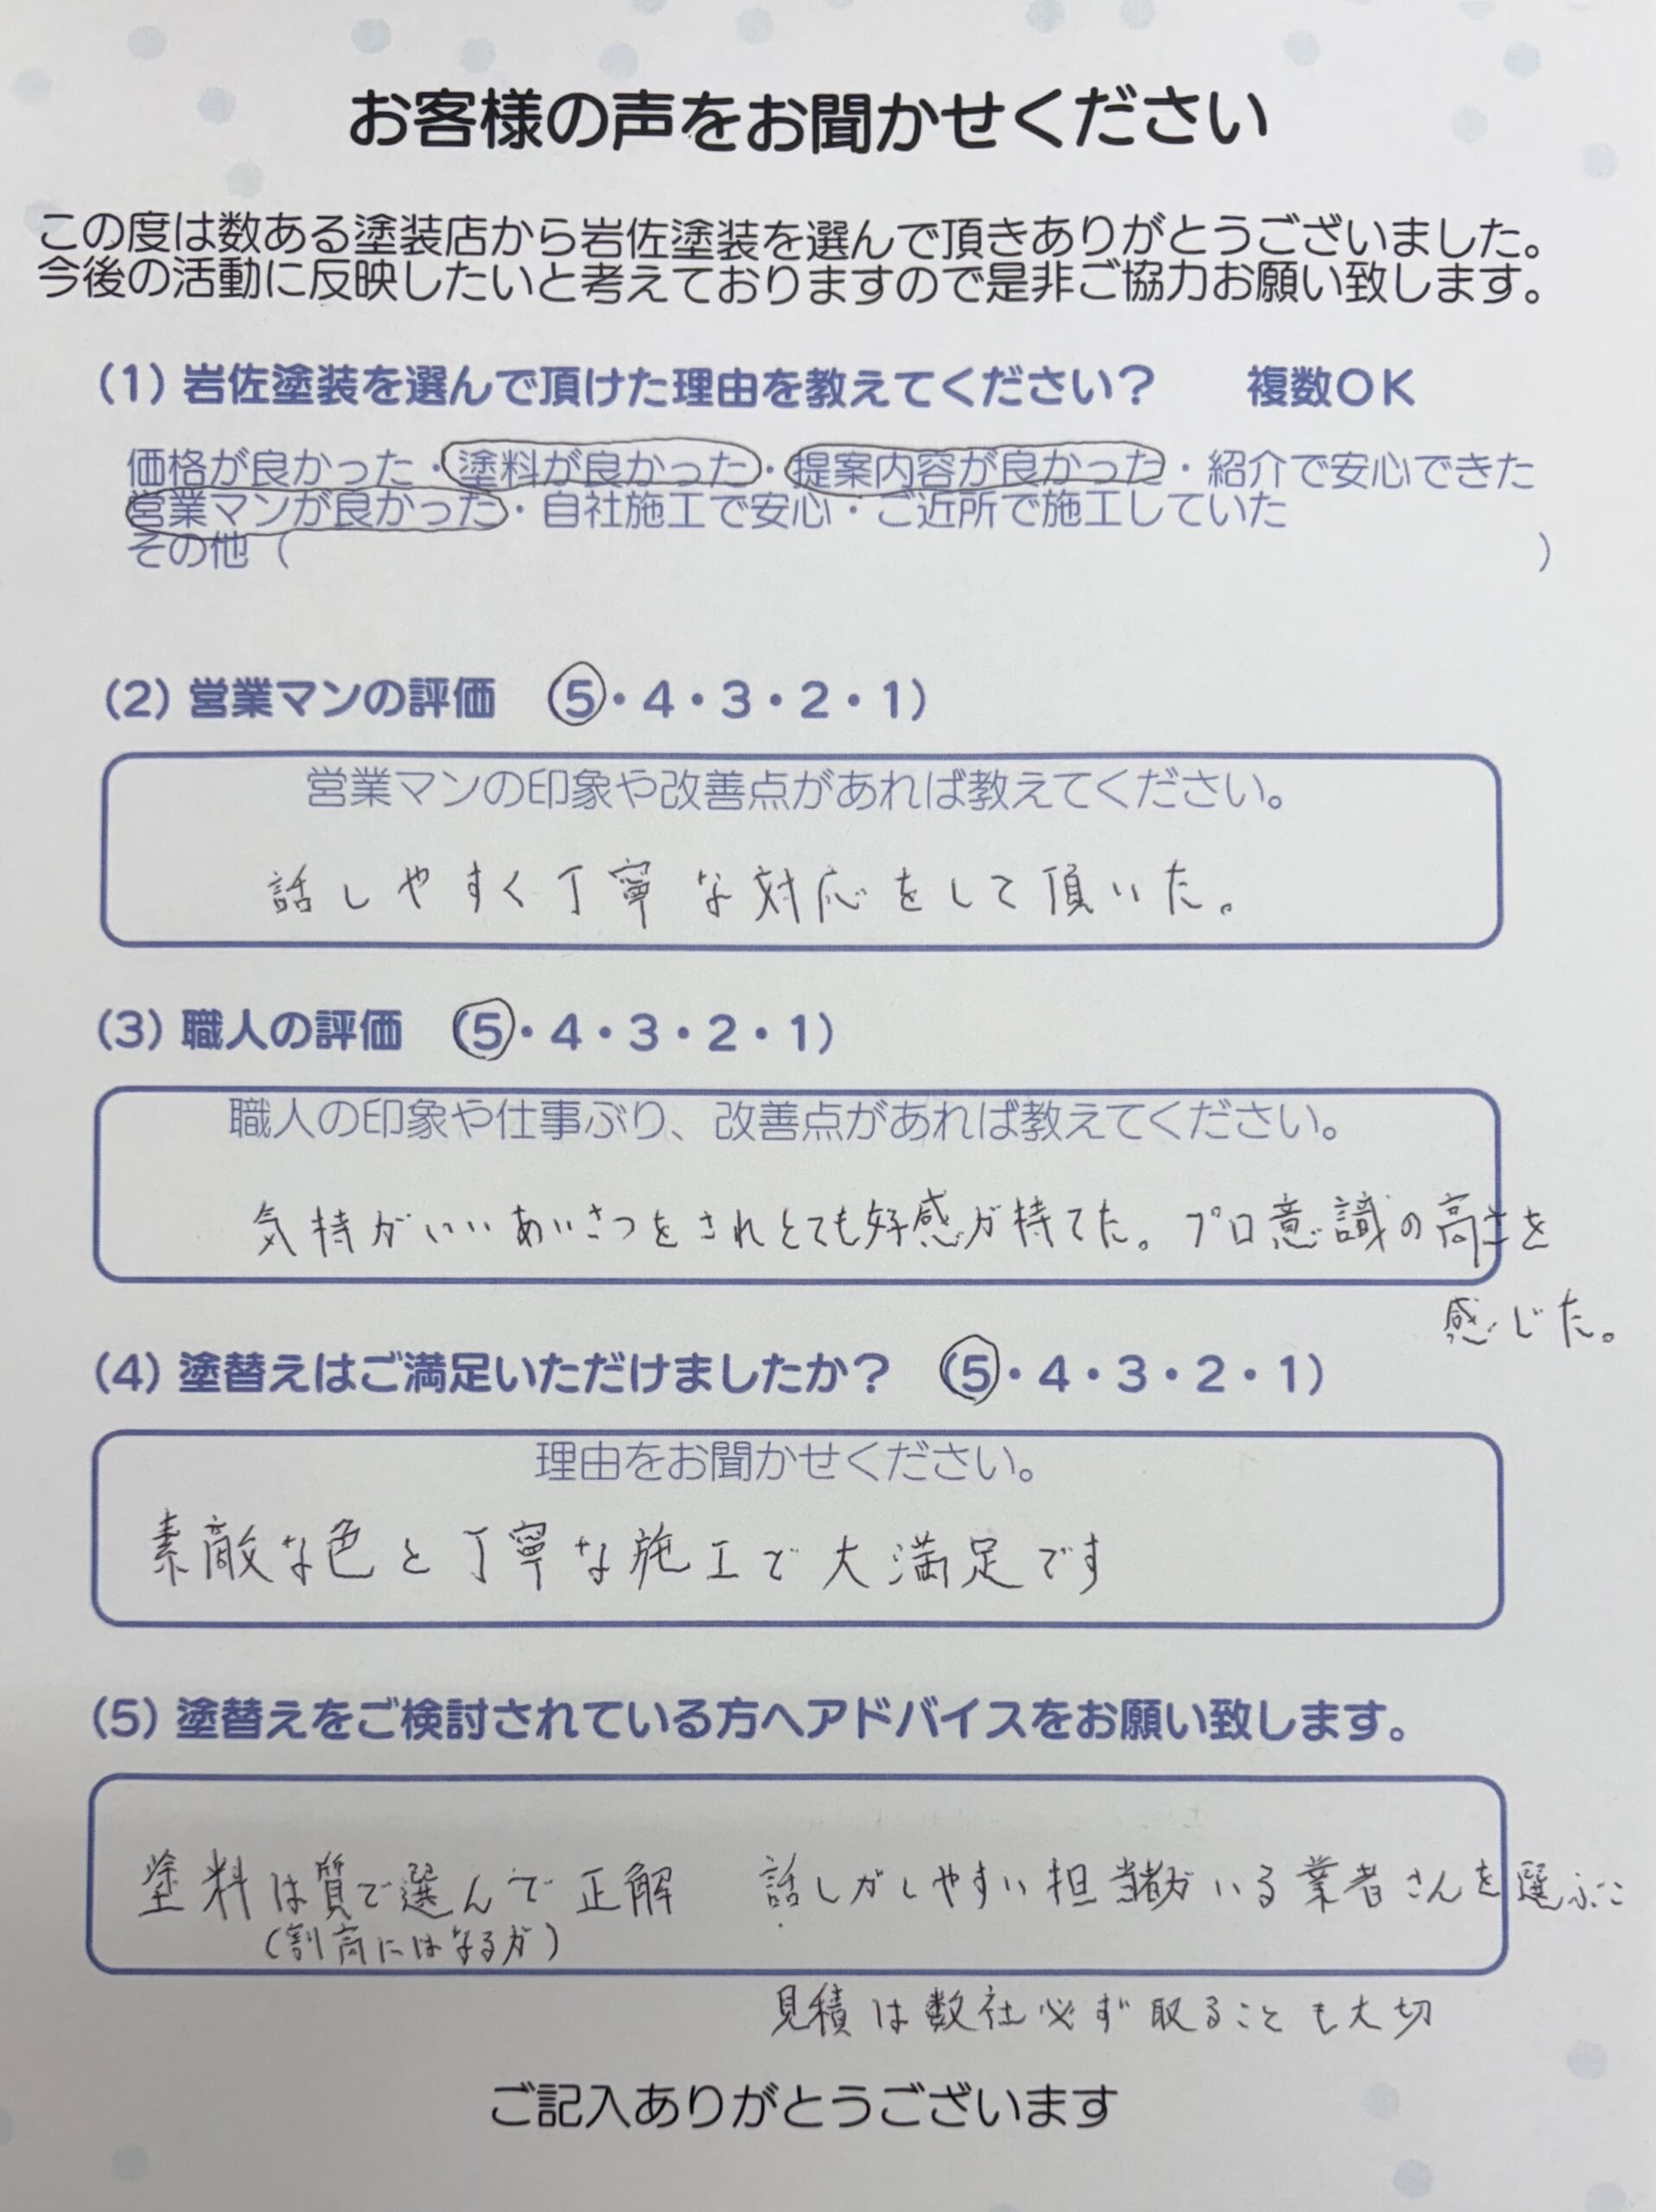 お客様の声をお聞かせください
この度は数ある塗装店から岩佐塗装を選んで頂きありがとうございました。
今後の活動に反映したいと考えておりますので是非ご協力お願い致します。
(1) 岩佐塗装を選んで頂けた理由を教えてください? 複数OK
価格が良かった・塗料が良かった・提案内容が良かった・紹介で安心できた
営業マンが良かった・自社施工で安心・ご近所で施工していた
その他 ( )
(2) 営業マンの評価 (5・4・3・2・1)
営業マンの印象や改善点があれば教えてください。
話しやすく丁寧な対応をして頂いた。
(3) 職人の評価 (5・4・3・2・1)
職人の印象や仕事ぶり、改善点があれば教えてください。
気持がいいあいさつをされとても好感が持てた。プロ意識の高さを
感じた。
(4) 塗替えはご満足いただけましたか? (5・4・3・2・1)
理由をお聞かせください。
素敵な色と丁寧な施工で大満足です
(5) 塗替えをご検討されている方へアドバイスをお願い致します。
塗料は質で選んで正解 話しがしやすい担当者がいる業者さんを選ぶこ
(割高にはなるが)
見積は数社必ず取ることも大切
ご記入ありがとうございます